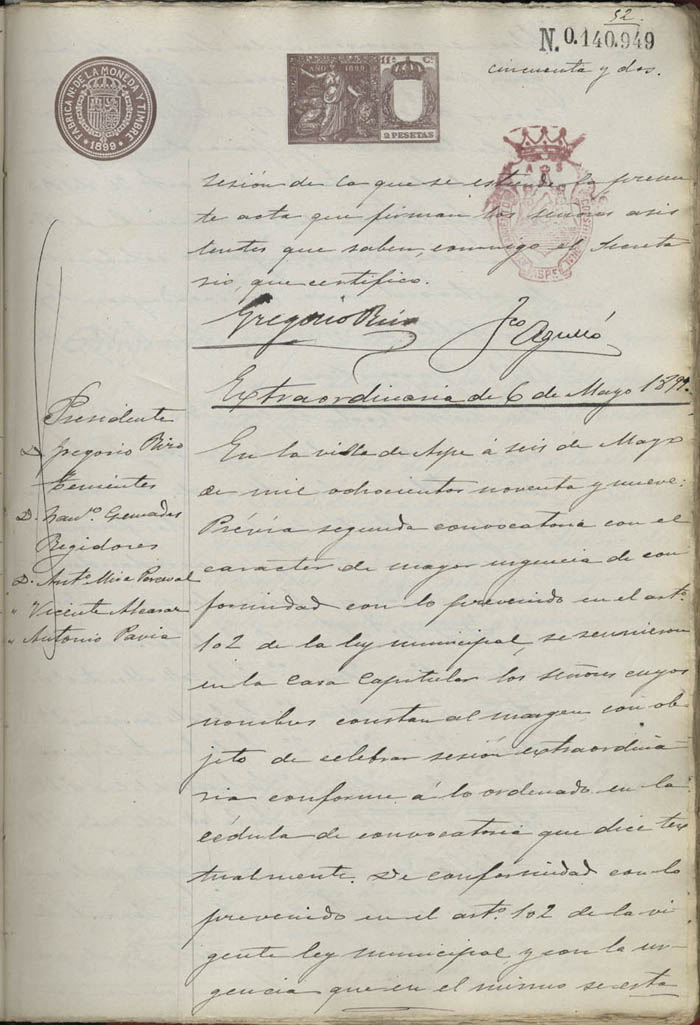 52.
N. 0.140.949
cincuenta y dos.
FABRICA NAL DE LA MONEDA Y TIMBRE
1899
AÑO 1899
11ª C.
2 PESETAS
sesión de la que se la presen
te acta que firman los señores asis
tentes que saben, conmigo el Secreta
rio, que certifico.
Gregorio Fco Agulló
Extraordinaria de 6 de Mayo 1899.
Presidente
D. Gregorio
Tenientes
D.
Regidores
D. Antº Mira
" Vicente Alcaraz
" Antonio Pavia
En la villa de Aspe á seis de Mayo
de mil ochocientos noventa y nueve:
Prévia segunda convocatoria con el
caracter de mayor urgencia de con
formidad con lo prevenido en el artº
102 de la ley municipal, se reunieron
en la Casa Capitular los señores cuyos
nombres constan al margen con ob
jeto de celebrar sesión extraordina
ria conforme á lo ordenado en la
cédula de convocatoria que dice tex
tualmente. De conformidad con lo
prevenido en el artº 102 de la vi
gente ley municipal y con la ur
gencia que en el mismo se esta